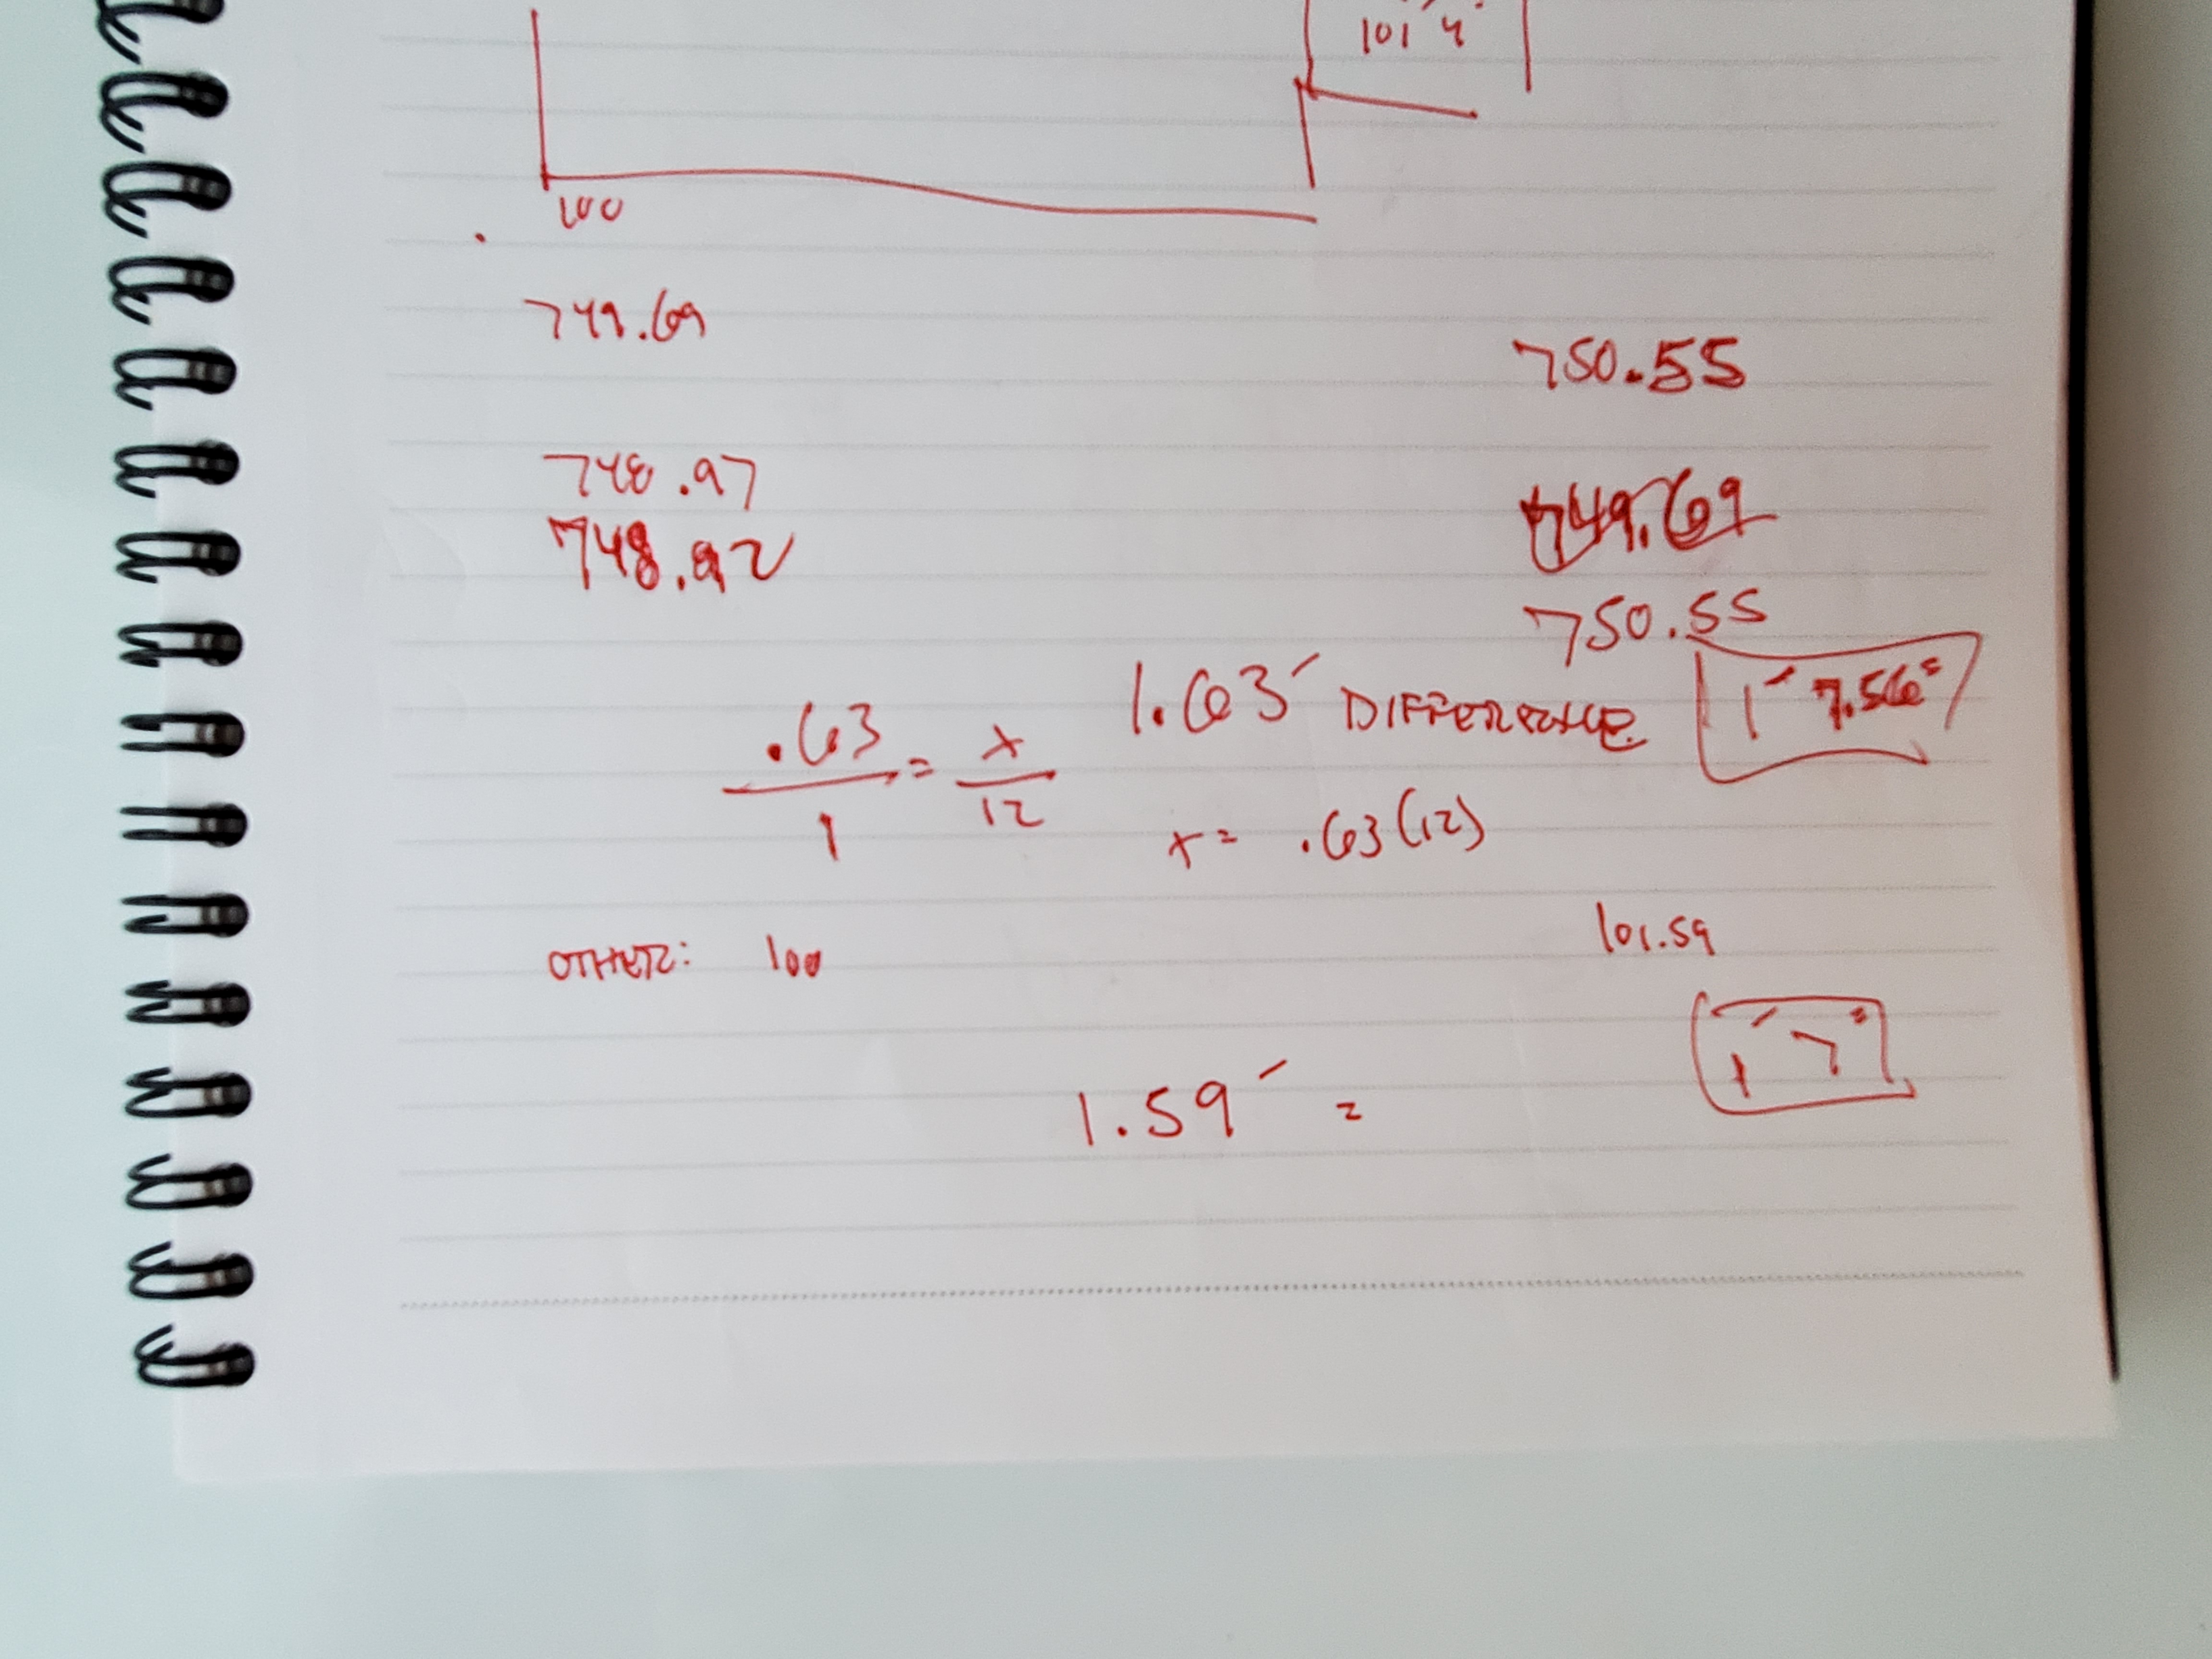 101' 4"
100
749.69
750.55
748.97
749.69
748.92
750.55
1.63' DIFFERENCE 1' 7.56"
.63/1 = x/12
x = .63(12)
OTHER: 100 101.59
1.59' = 1' 7"